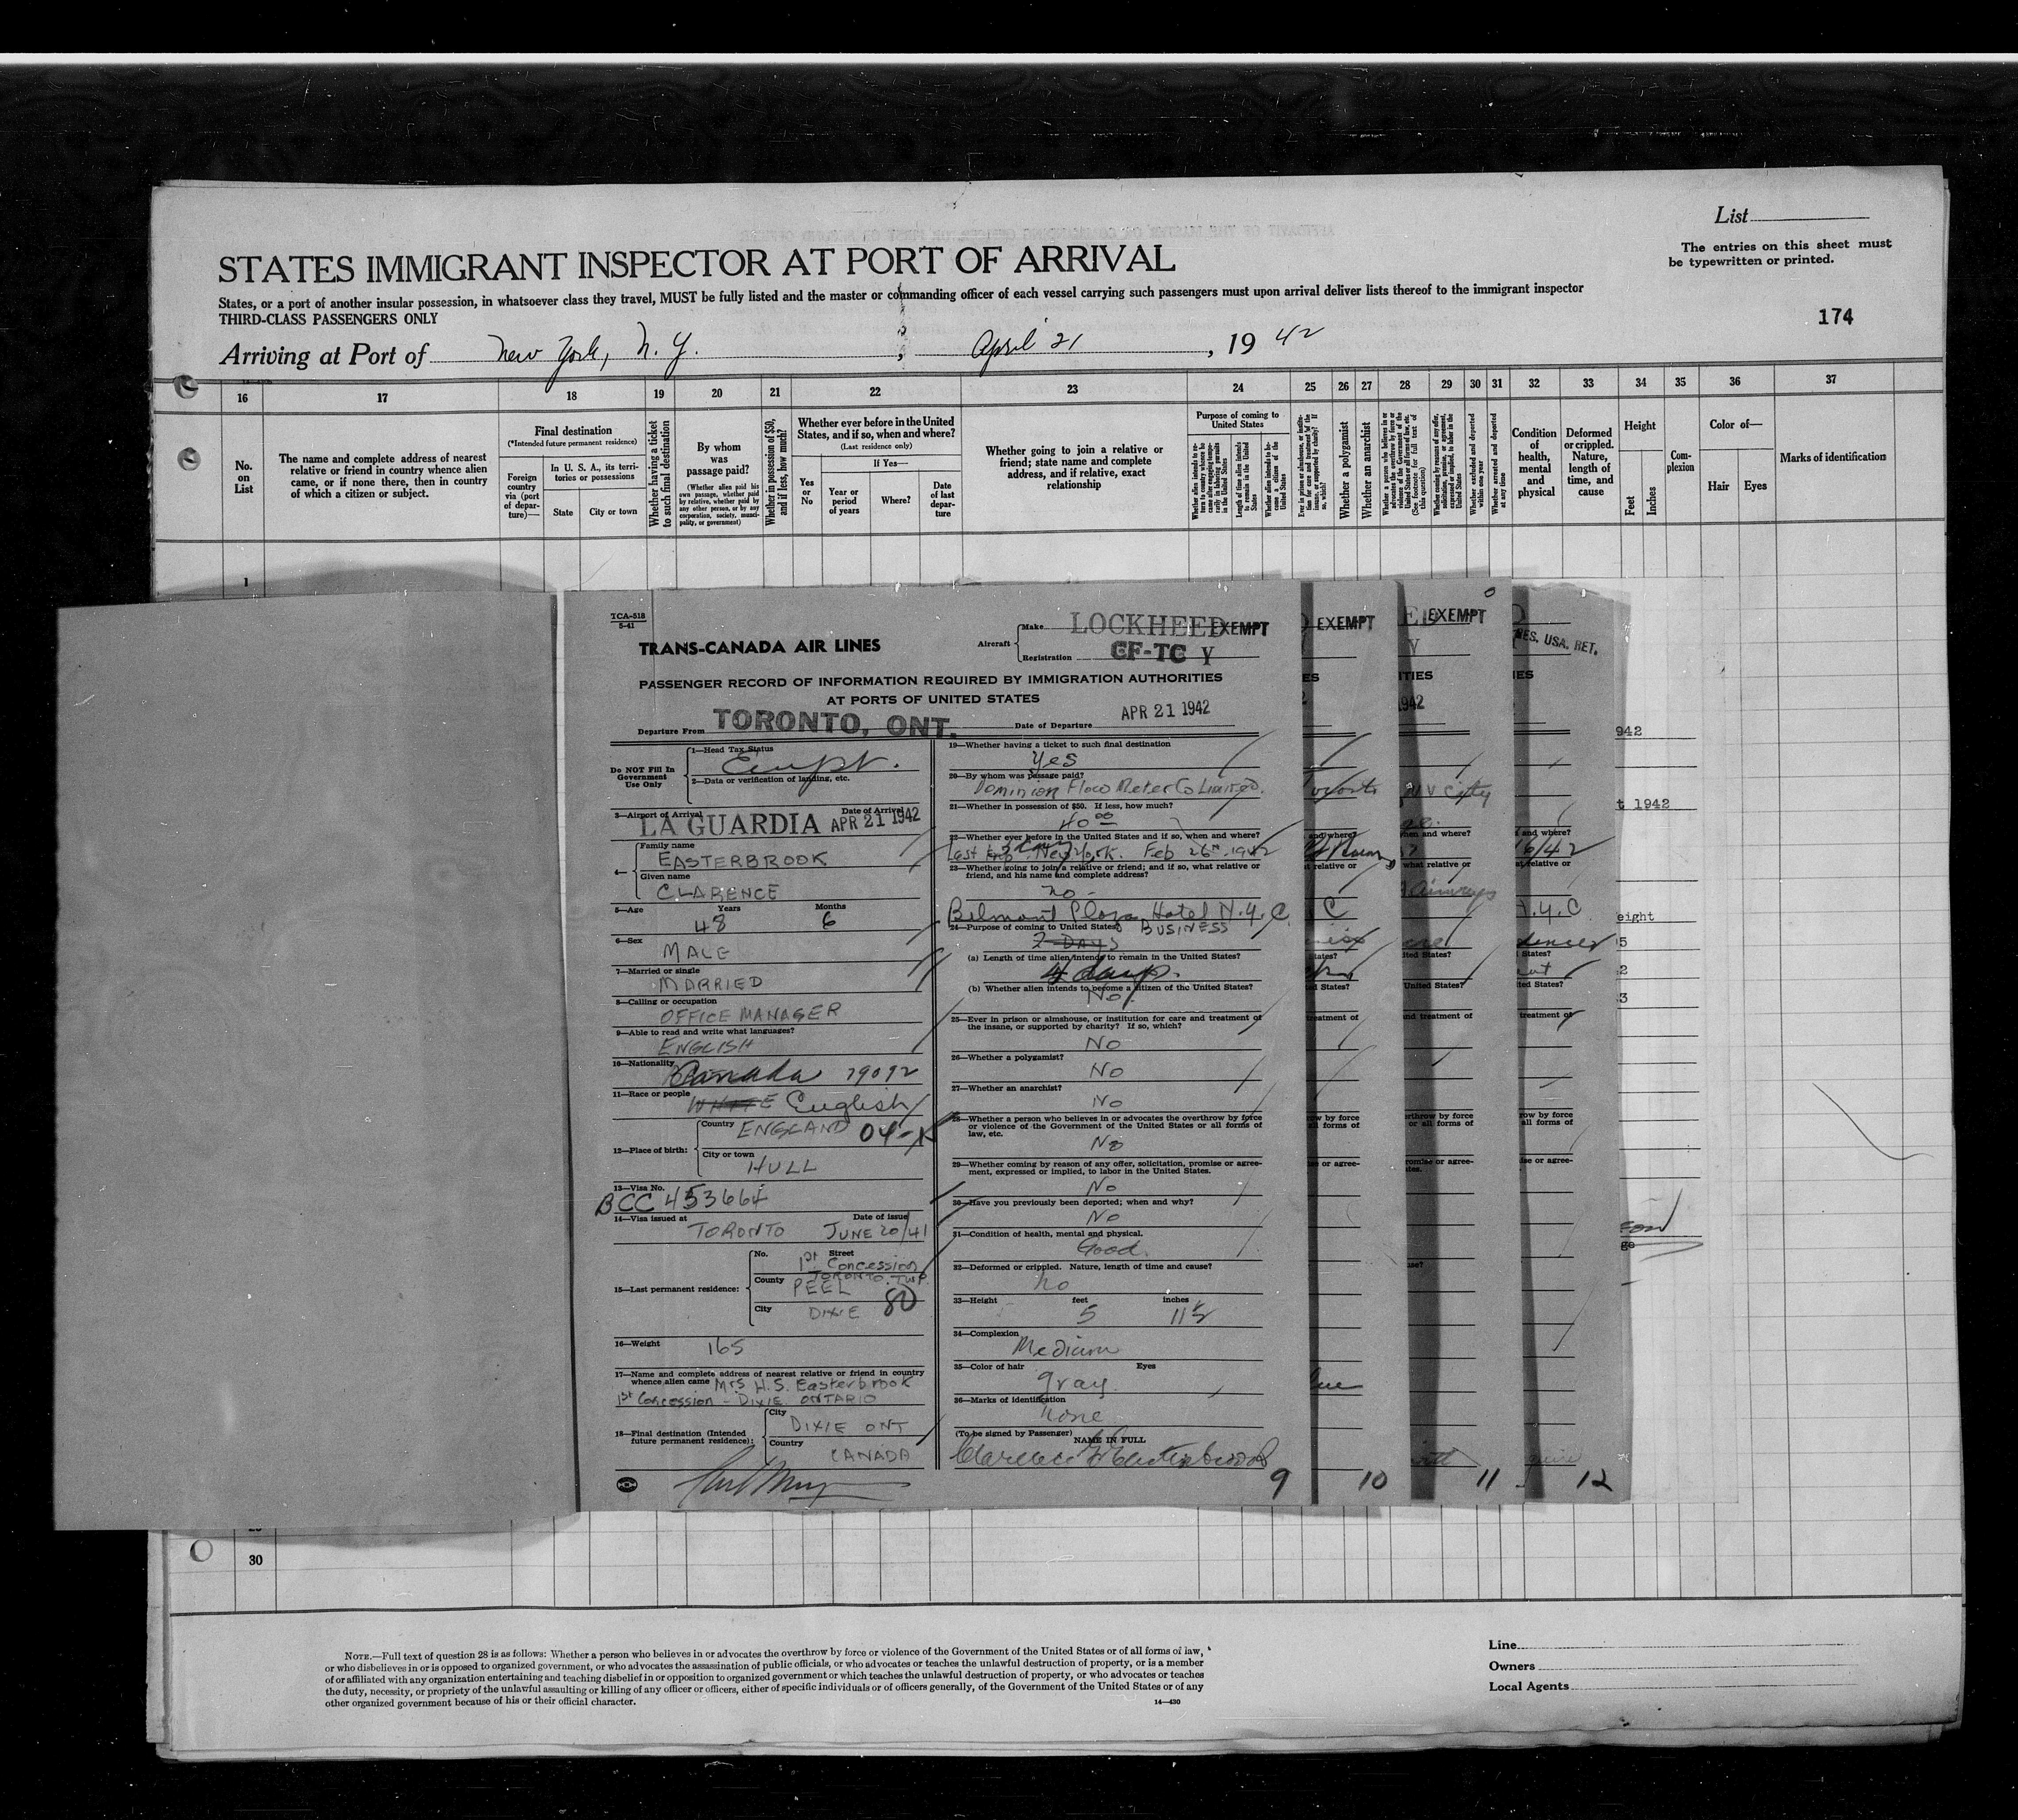 List
The entries on this sheet must
be typewritten or printed.
STATES IMMIGRANT INSPECTOR AT PORT OF ARRIVAL
States, or a port of another insular possession, in whatsoever class they travel, MUST be fully listed and the master or commanding officer of each vessel carrying such passengers must upon arrival deliver lists thereof to the immigrant inspector
THIRD-CLASS PASSENGERS ONLY
174
Arriving at Port of New York, N. Y. , April 21 , 19 42
16 17 18 19 20 21 22 23 24 25 26 27 28 29 30 31 32 33 34 35 36 37
No.
on
List
The name and complete address of nearest
relative or friend in country whence alien
came, or if none there, then in country
of which a citizen or subject.
Final destination
(*Intended future permanent residence)
Foreign
country
via (port
of depar-
ture)—
In U. S. A., its terri-
tories or possessions
State
City or town
Whether having a ticket
to such final destination
By whom
was
passage paid?
(Whether alien paid his
own passage, whether paid
by relative, whether paid by
any other person, or by any
corporation, society, munici-
pality, or government)
Whether in possession of $50,
and if less, how much?
Whether ever before in the United
States, and if so, when and where?
(Last residence only)
Yes
or
No
If Yes—
Year or
period
of years
Where?
Date
of last
depar-
ture
Whether going to join a relative or
friend; state name and complete
address, and if relative, exact
relationship
Purpose of coming to
United States
Whether a polygamist
Whether an anarchist
Condition
of
health,
mental
and
physical
Deformed
or crippled.
Nature,
length of
time, and
cause
Height
Feet
Inches
Com-
plexion
Color of—
Hair
Eyes
Marks of identification
1
TCA-518
5-41
TRANS-CANADA AIR LINES
Aircraft
Make LOCKHEED EXEMPT
Registration CF-TC Y
PASSENGER RECORD OF INFORMATION REQUIRED BY IMMIGRATION AUTHORITIES
AT PORTS OF UNITED STATES
Departure From TORONTO, ONT. Date of Departure APR 21 1942
Do NOT Fill In
Government
Use Only
1—Head Tax Status
Exmpt.
2—Data or verification of landing, etc.
3—Airport of Arrival Date of Arrival
LA GUARDIA APR 21 1942
4—
Family name
EASTERBROOK
Given name
CLARENCE
5—Age Years Months
48 6
6—Sex
MALE
7—Married or single
MARRIED
8—Calling or occupation
OFFICE MANAGER
9—Able to read and write what languages?
ENGLISH
10—Nationality Canada 79092
11—Race or people WHITE English
12—Place of birth:
Country ENGLAND 04-X
City or town
HULL
13—Visa No.
BCC 453664
14—Visa issued at Date of issue
TORONTO JUNE 20/41
15—Last permanent residence:
No. Street
1st Concession
TORONTO. TWP.
County PEEL
City DIXIE 80
16—Weight 165
17—Name and complete address of nearest relative or friend in country
whence alien came Mrs H.S. Easterbrook
1st Concession - DIXIE ONTARIO
18—Final destination (Intended
future permanent residence):
City
DIXIE ONT
Country
CANADA
19—Whether having a ticket to such final destination
Yes
20—By whom was passage paid?
Dominion Flow Meter Co Limited.
21—Whether in possession of $50. If less, how much?
40 00
22—Whether ever before in the United States and if so, when and where?
Last trip New York. Feb 26th 1942
23—Whether going to join a relative or friend; and if so, what relative or
friend, and his name and complete address?
no -
Belmont Plaza Hotel N.Y.C
24—Purpose of coming to United States? BUSINESS
2 DAYS
(a) Length of time alien intends to remain in the United States?
4 days.
(b) Whether alien intends to become a citizen of the United States?
No.
25—Ever in prison or almshouse, or institution for care and treatment of
the insane, or supported by charity? If so, which?
No
26—Whether a polygamist?
No
27—Whether an anarchist?
No
28—Whether a person who believes in or advocates the overthrow by force
or violence of the Government of the United States or all forms of
law, etc.
No
29—Whether coming by reason of any offer, solicitation, promise or agree-
ment, expressed or implied, to labor in the United States.
No
30—Have you previously been deported; when and why?
No
31—Condition of health, mental and physical.
Good.
32—Deformed or crippled. Nature, length of time and cause?
no
33—Height feet inches
5 11½
34—Complexion
Medium
35—Color of hair Eyes
gray.
36—Marks of identification
none
(To be signed by Passenger) NAME IN FULL
9 10 11 12
EXEMPT
EXEMPT
RES. USA. RET.
30
NOTE.—Full text of question 28 is as follows: Whether a person who believes in or advocates the overthrow by force or violence of the Government of the United States or of all forms of law,
or who disbelieves in or is opposed to organized government, or who advocates the assassination of public officials, or who advocates or teaches the unlawful destruction of property, or is a member
of or affiliated with any organization entertaining and teaching disbelief in or opposition to organized government or which teaches the unlawful destruction of property, or who advocates or teaches
the duty, necessity, or propriety of the unlawful assaulting or killing of any officer or officers, either of specific individuals or of officers generally, of the Government of the United States or of any
other organized government because of his or their official character.
14—430
Line
Owners
Local Agents